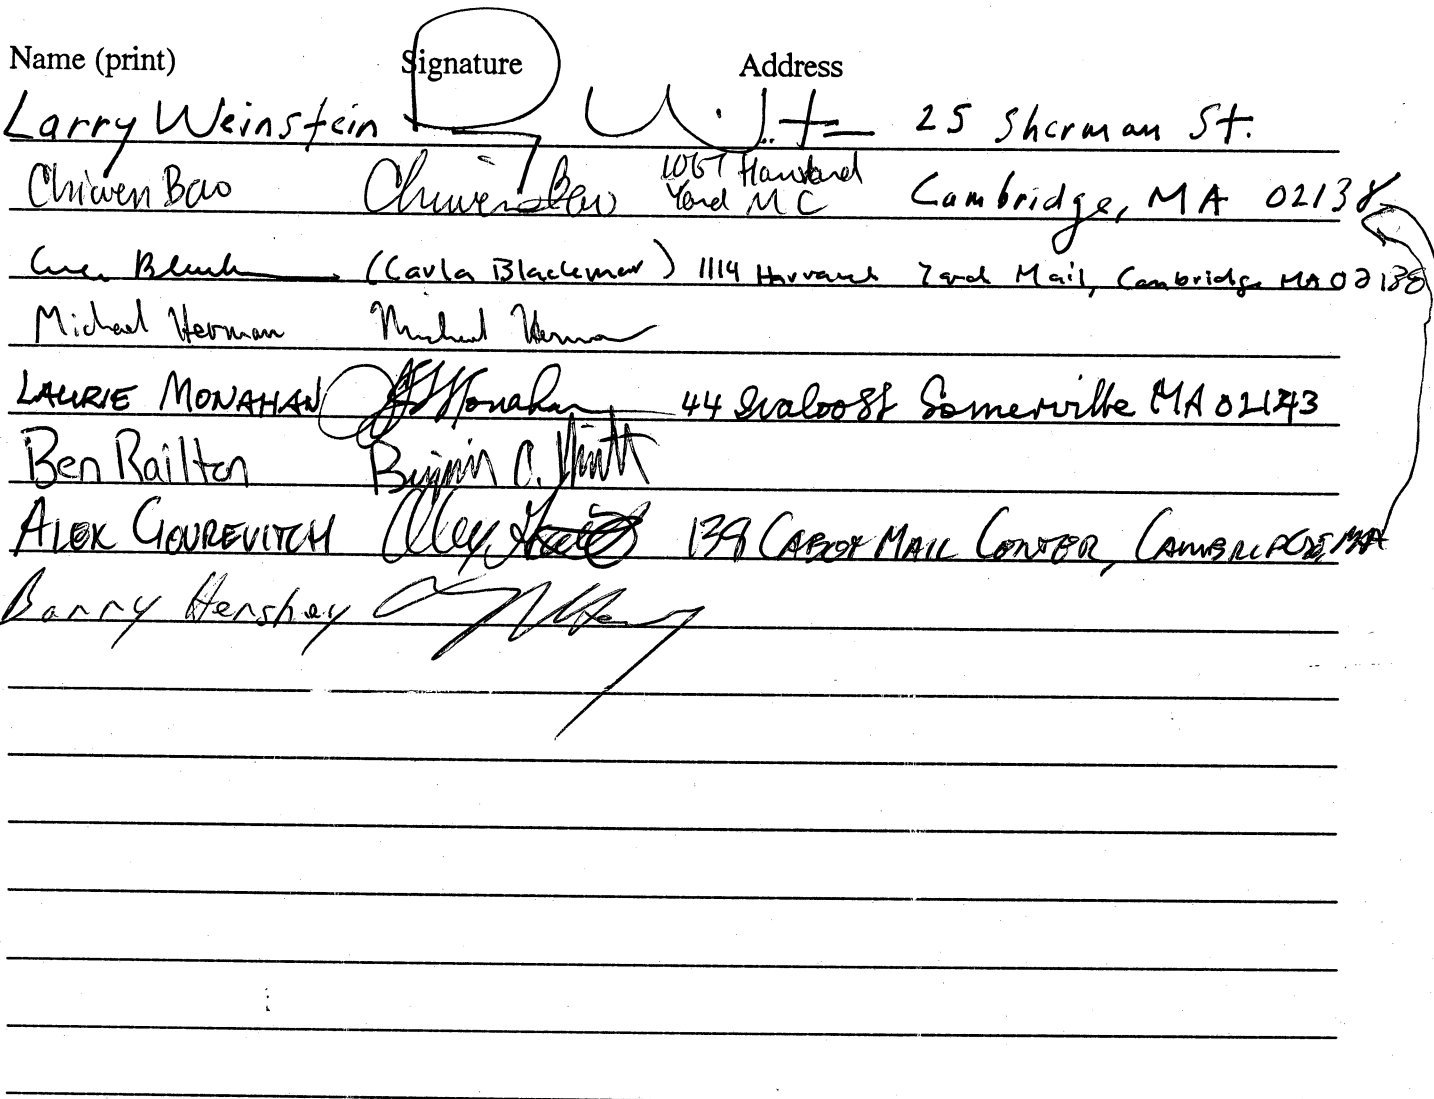 Name (print) Signature Address
Larry Weinstein 25 Sherman St.
Chiwen Bao Chiwen Bao 1067 Harvard Yard MC Cambridge, MA 02138
(Carla Blackmar) 1114 Harvard Yard Mail, Cambridge MA 02138
Michael Herman Michael Herman
LAURIE MONAHAN Monahan 44 St Somerville MA 02143
Ben Railton
ALEX GOUREVITCH Alex 138 CABOT MAIL CENTER, CAMBRIDGE, MA
Barry Hershey